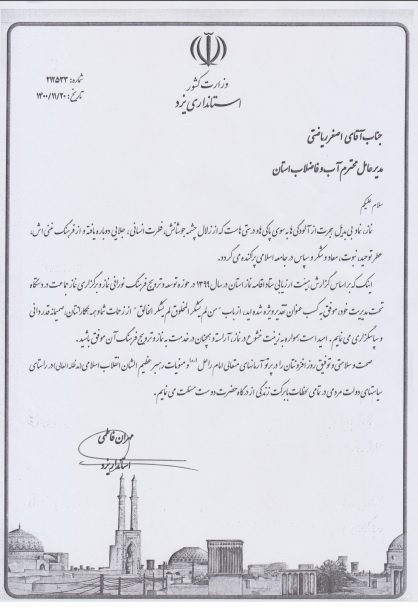 وزارت کشور
استانداری یزد
شماره: ۲۱۲۵۳۳
تاریخ: ۱۴۰۰/۱۱/۲۰
جناب آقای اصغر ریاضتی
مدیرعامل محترم آب و فاضلاب استان
سلام علیکم
نماز، نماد بی بدیل هجرت از آلودگی ها به سوی پاکی ها و درستی هاست که از زلال چشمه جوشانش، فطرت انسانی، جلایی دوباره یافته و از فرهنگ غنی اش،
عطر توحید، نبوت، معاد و شکر و سپاس در جامعه اسلامی پراکنده می گردد.
اینک که بر اساس گزارش بیست ارزیابی ستاد اقامه نماز استان در سال ۱۳۹۹ در حوزه توسعه و ترویج فرهنگ نورانی نماز و برگزاری نماز جماعت در دستگاه
تحت مدیریت خود، موفق به کسب عنوان تقدیر ویژه شده اید، از باب "من لم یشکر المخلوق لم یشکر الخالق" از زحمات شما و همکارانتان، صمیمانه قدردانی
و سپاسگزاری می نمایم. امید است همواره به زینت خشوع در نماز، آراسته و همچنان در خدمت به نماز و ترویج فرهنگ آن موفق باشید.
صحت و سلامتی و توفیق روز افزونتان را در پرتو آرمانهای متعالی امام راحل (ره) و منویات رهبر عظیم الشان انقلاب اسلامی (مدظله العالی) در راستای
سیاستهای دولت مردمی در تمامی لحظات با برکت زندگی از درگاه حضرت دوست مسئلت می نمایم.
مهران فاطمی
استاندار یزد